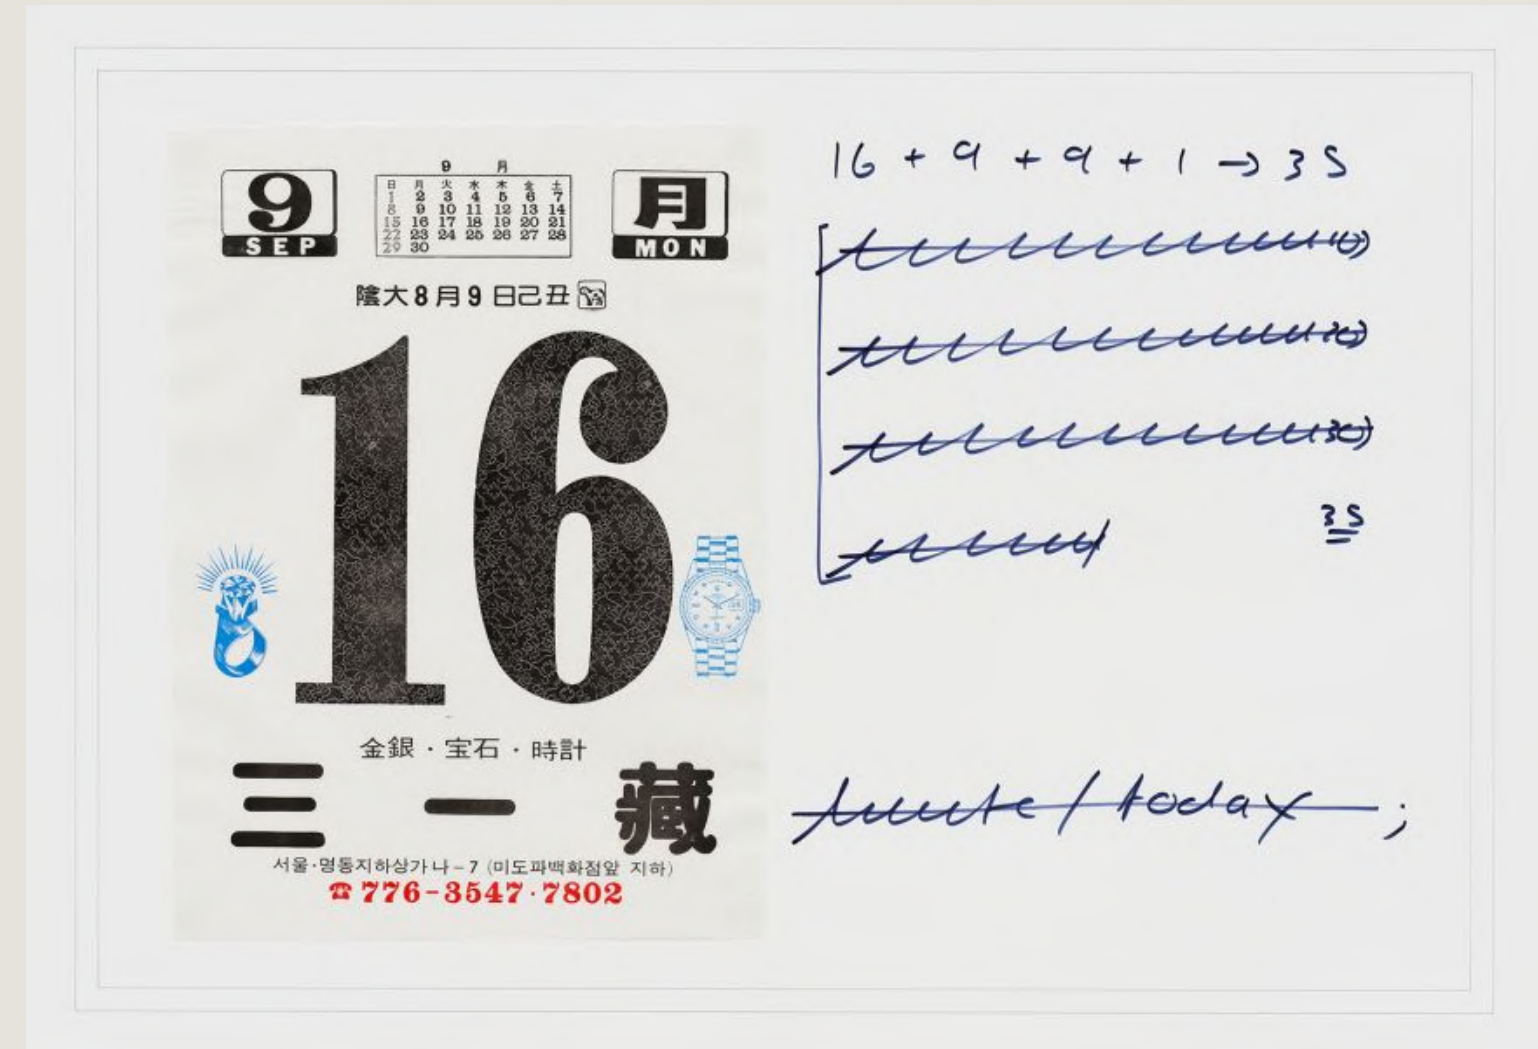 9 月
日 月 火 水 木 金 土
1 2 3 4 5 6 7
8 9 10 11 12 13 14
15 16 17 18 19 20 21
22 23 24 25 26 27 28
29 30
9
SEP
月
MON
陰大8月9日己丑
16
金銀・宝石・時計
三一藏
서울·명동지하상가나-7 (미도파백화점앞 지하)
☎776-3547·7802
16 + 9 + 9 + 1 → 35
(10)
(20)
(30)
35
/ today ;